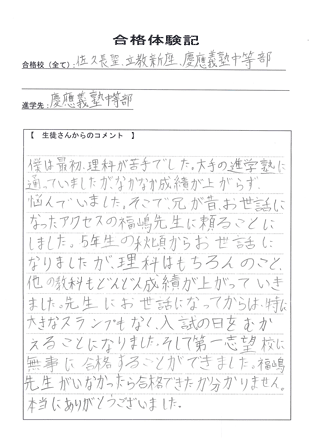 合格体験記
合格校（全て）: 佐久長聖、立教新座、慶應義塾中等部
進学先: 慶應義塾中等部
【 生徒さんからのコメント 】
僕は最初、理科が苦手でした。大手の進学塾に
通っていましたが、なかなか成績が上がらず、
悩んでいました。そこで、兄が昔、お世話に
なったアクセスの福嶋先生に頼ることに
しました。5年生の秋頃からお世話に
なりましたが、理科はもちろんのこと、
他の教科もどんどん成績が上がっていき
ました。先生にお世話になってからは、特に
大きなスランプもなく、入試の日をむか
えることになりました。そして第一志望校に
無事に合格することができました。福嶋
先生がいなかったら合格できたか分かりません。
本当にありがとうございました。